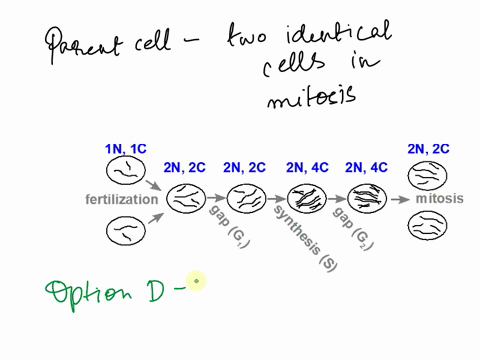 Parent cell – two identical
cells in
mitosis
1N, 1C
2N, 2C
2N, 2C
2N, 4C
2N, 4C
2N, 2C
fertilization
gap (G₁)
synthesis (S)
gap (G₂)
mitosis
Option D –